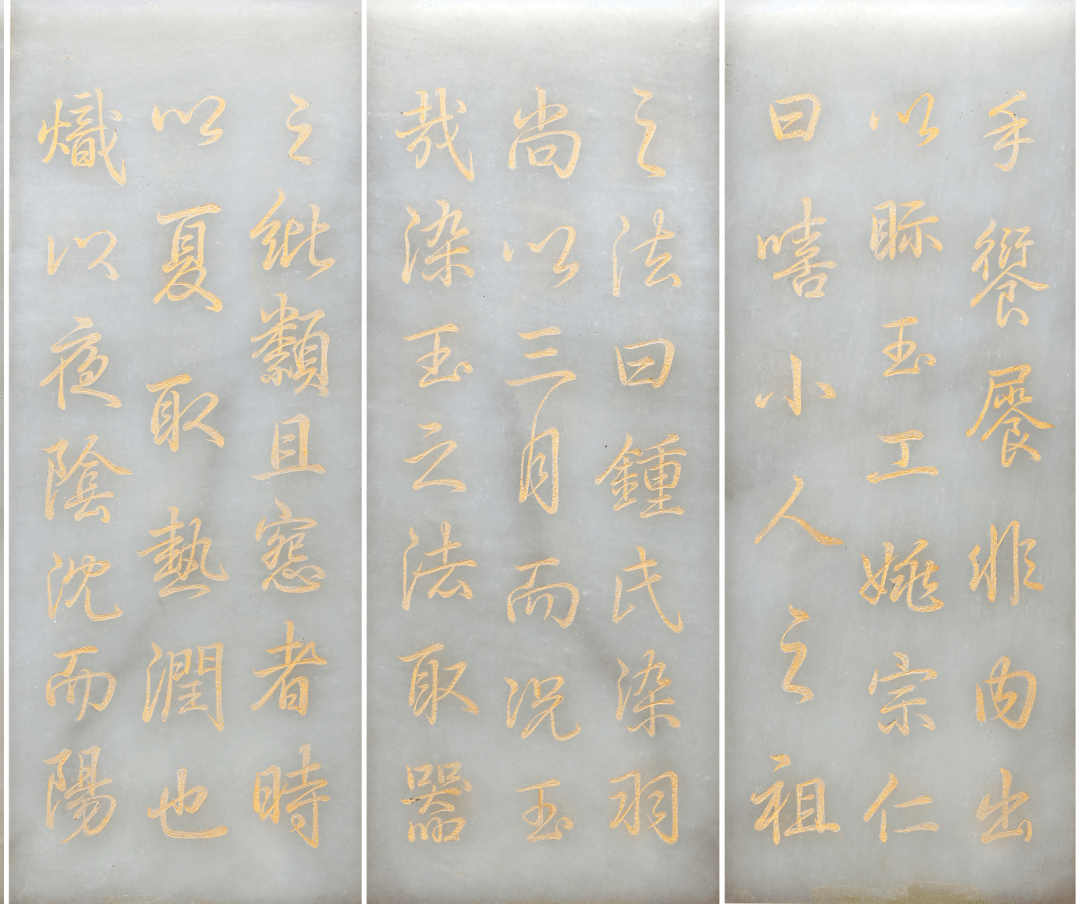 手非内出
以眎玉工姚宗仁
曰嘻小人之祖
之法曰鍾氏染羽
尚以三月而況玉
哉染玉之法取器
之紕纇且者時
以夏取熱潤也
熾以夜陰沈而陽